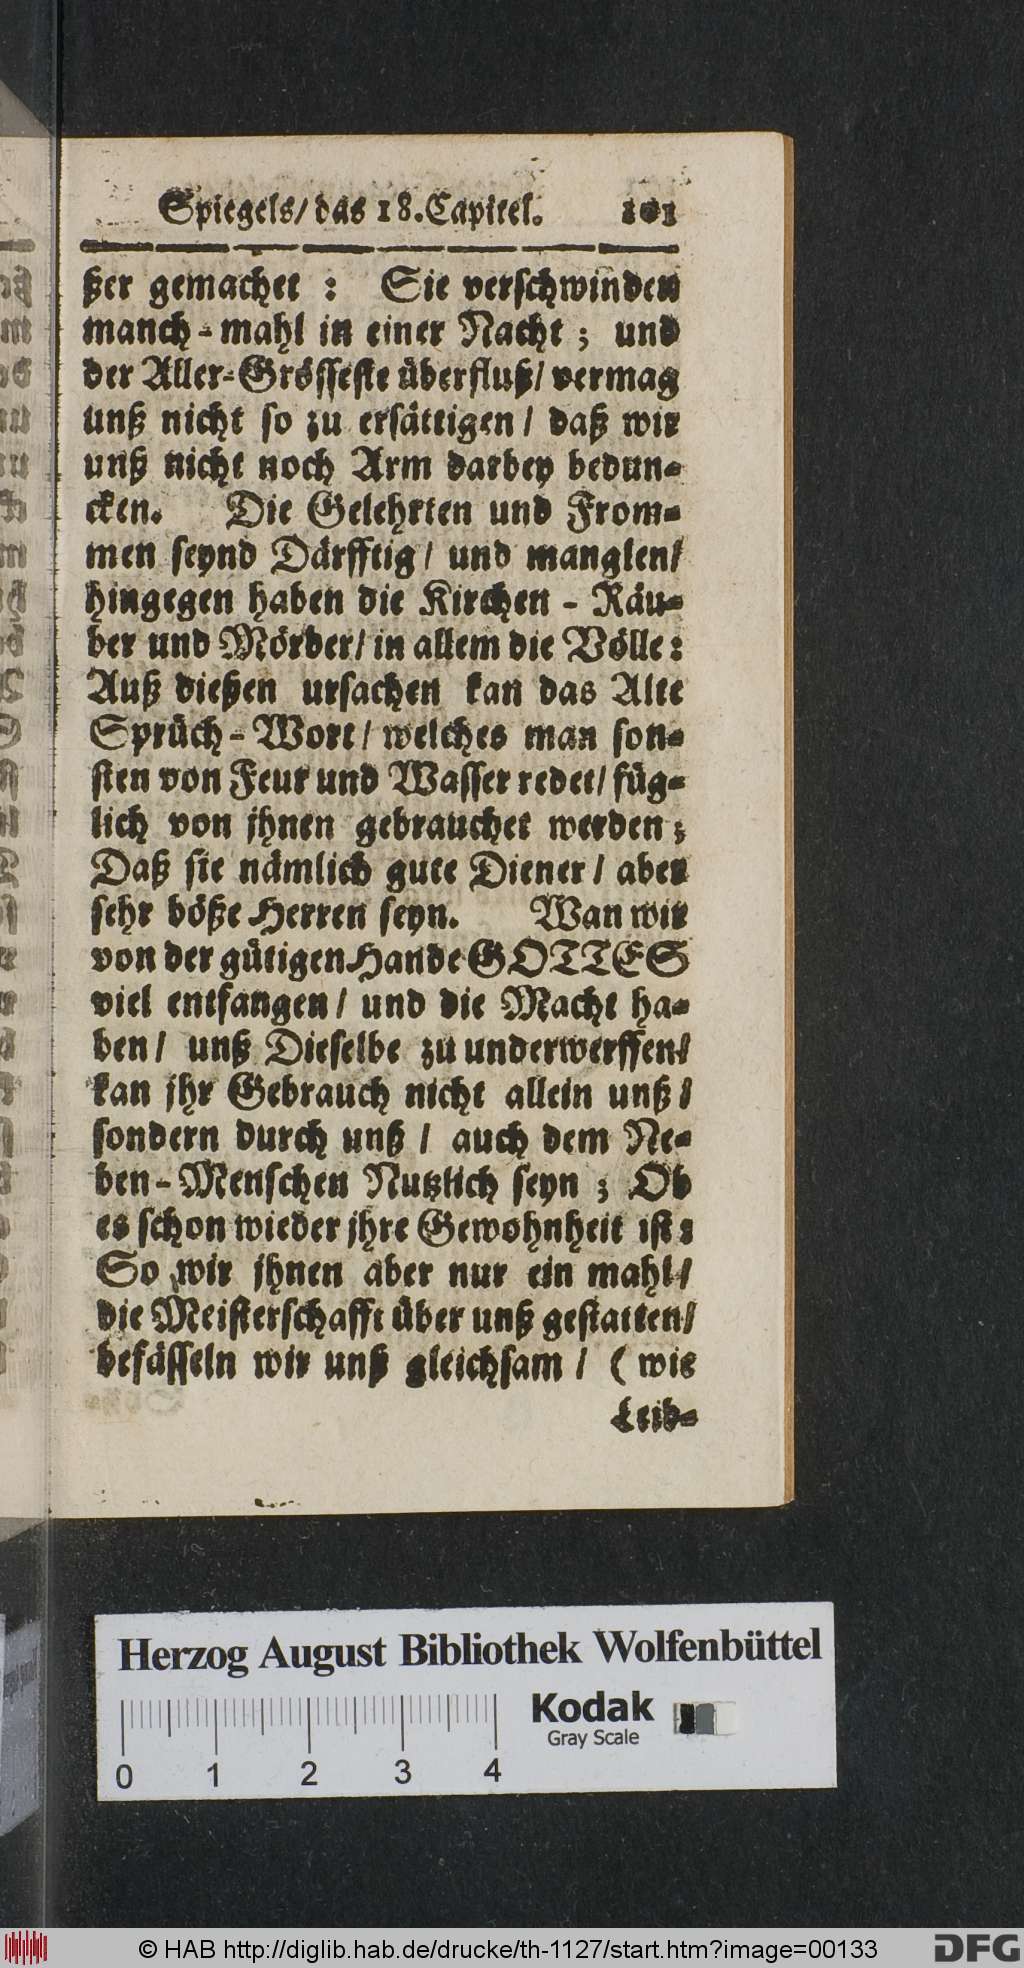 Spiegels/ das 18. Capitel. 101
ßer gemachet : Sie verschwinden
manch-mahl in einer Nacht; und
der Aller-Grösseste überfluß/ vermag
unß nicht so zu ersättigen / daß wir
unß nicht noch Arm darbey bedun-
cken. Die Gelehrten und From-
men seynd Därfftig / und manglen/
hingegen haben die Kirchen-Räu-
ber und Mörder/ in allem die Völle:
Auß dießen ursachen kan das Alte
Sprüch-Wort / welches man son-
sten von Feur und Wasser redet/ füg-
lich von jhnen gebrauchet werden;
Daß sie nämlich gute Diener / aber
sehr böße Herren seyn. Wan wir
von der gütigen Hande GOTTES
viel entfangen / und die Macht ha-
ben / unß Dieselbe zu underwerffen/
kan jhr Gebrauch nicht allein unß /
sondern durch unß / auch dem Ne-
ben-Menschen Nutzlich seyn ; Ob
es schon wieder jhre Gewohnheit ist:
So wir jhnen aber nur ein mahl/
die Meisterschafft über unß gestatten/
befässeln wir unß gleichsam / ( wie
Leib-
Herzog August Bibliothek Wolfenbüttel
Kodak
Gray Scale
0 1 2 3 4
© HAB http://diglib.hab.de/drucke/th-1127/start.htm?image=00133
DFG